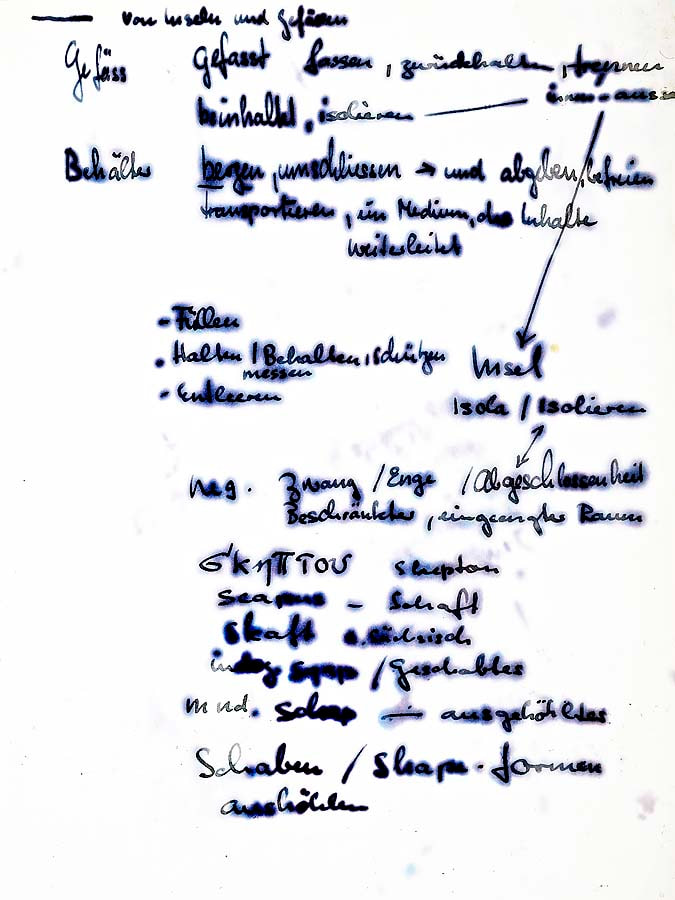 von Inseln und Gefässen
Gefäss Gefasst fassen, zurückhalten, trennen
beinhaltet, isolieren — innen-aussen
Behälter bergen, umschliessen → und abgeben, befreien
transportieren, ein Medium, das Inhalte
weiterleitet
- Füllen
• Halten / Behalten, schützen
messen
• Entleeren
Insel
Isola / Isolieren
neg. Zwang / Enge / Abgeschlossenheit
Beschränkter, eingeengter Raum
σκηπτου skepton
scapus - Schaft
skaft a. sächsisch
indog. / Geschabtes
mnd. Schap — ausgehöhltes
Schaben / Shape - formen
aushöhlen